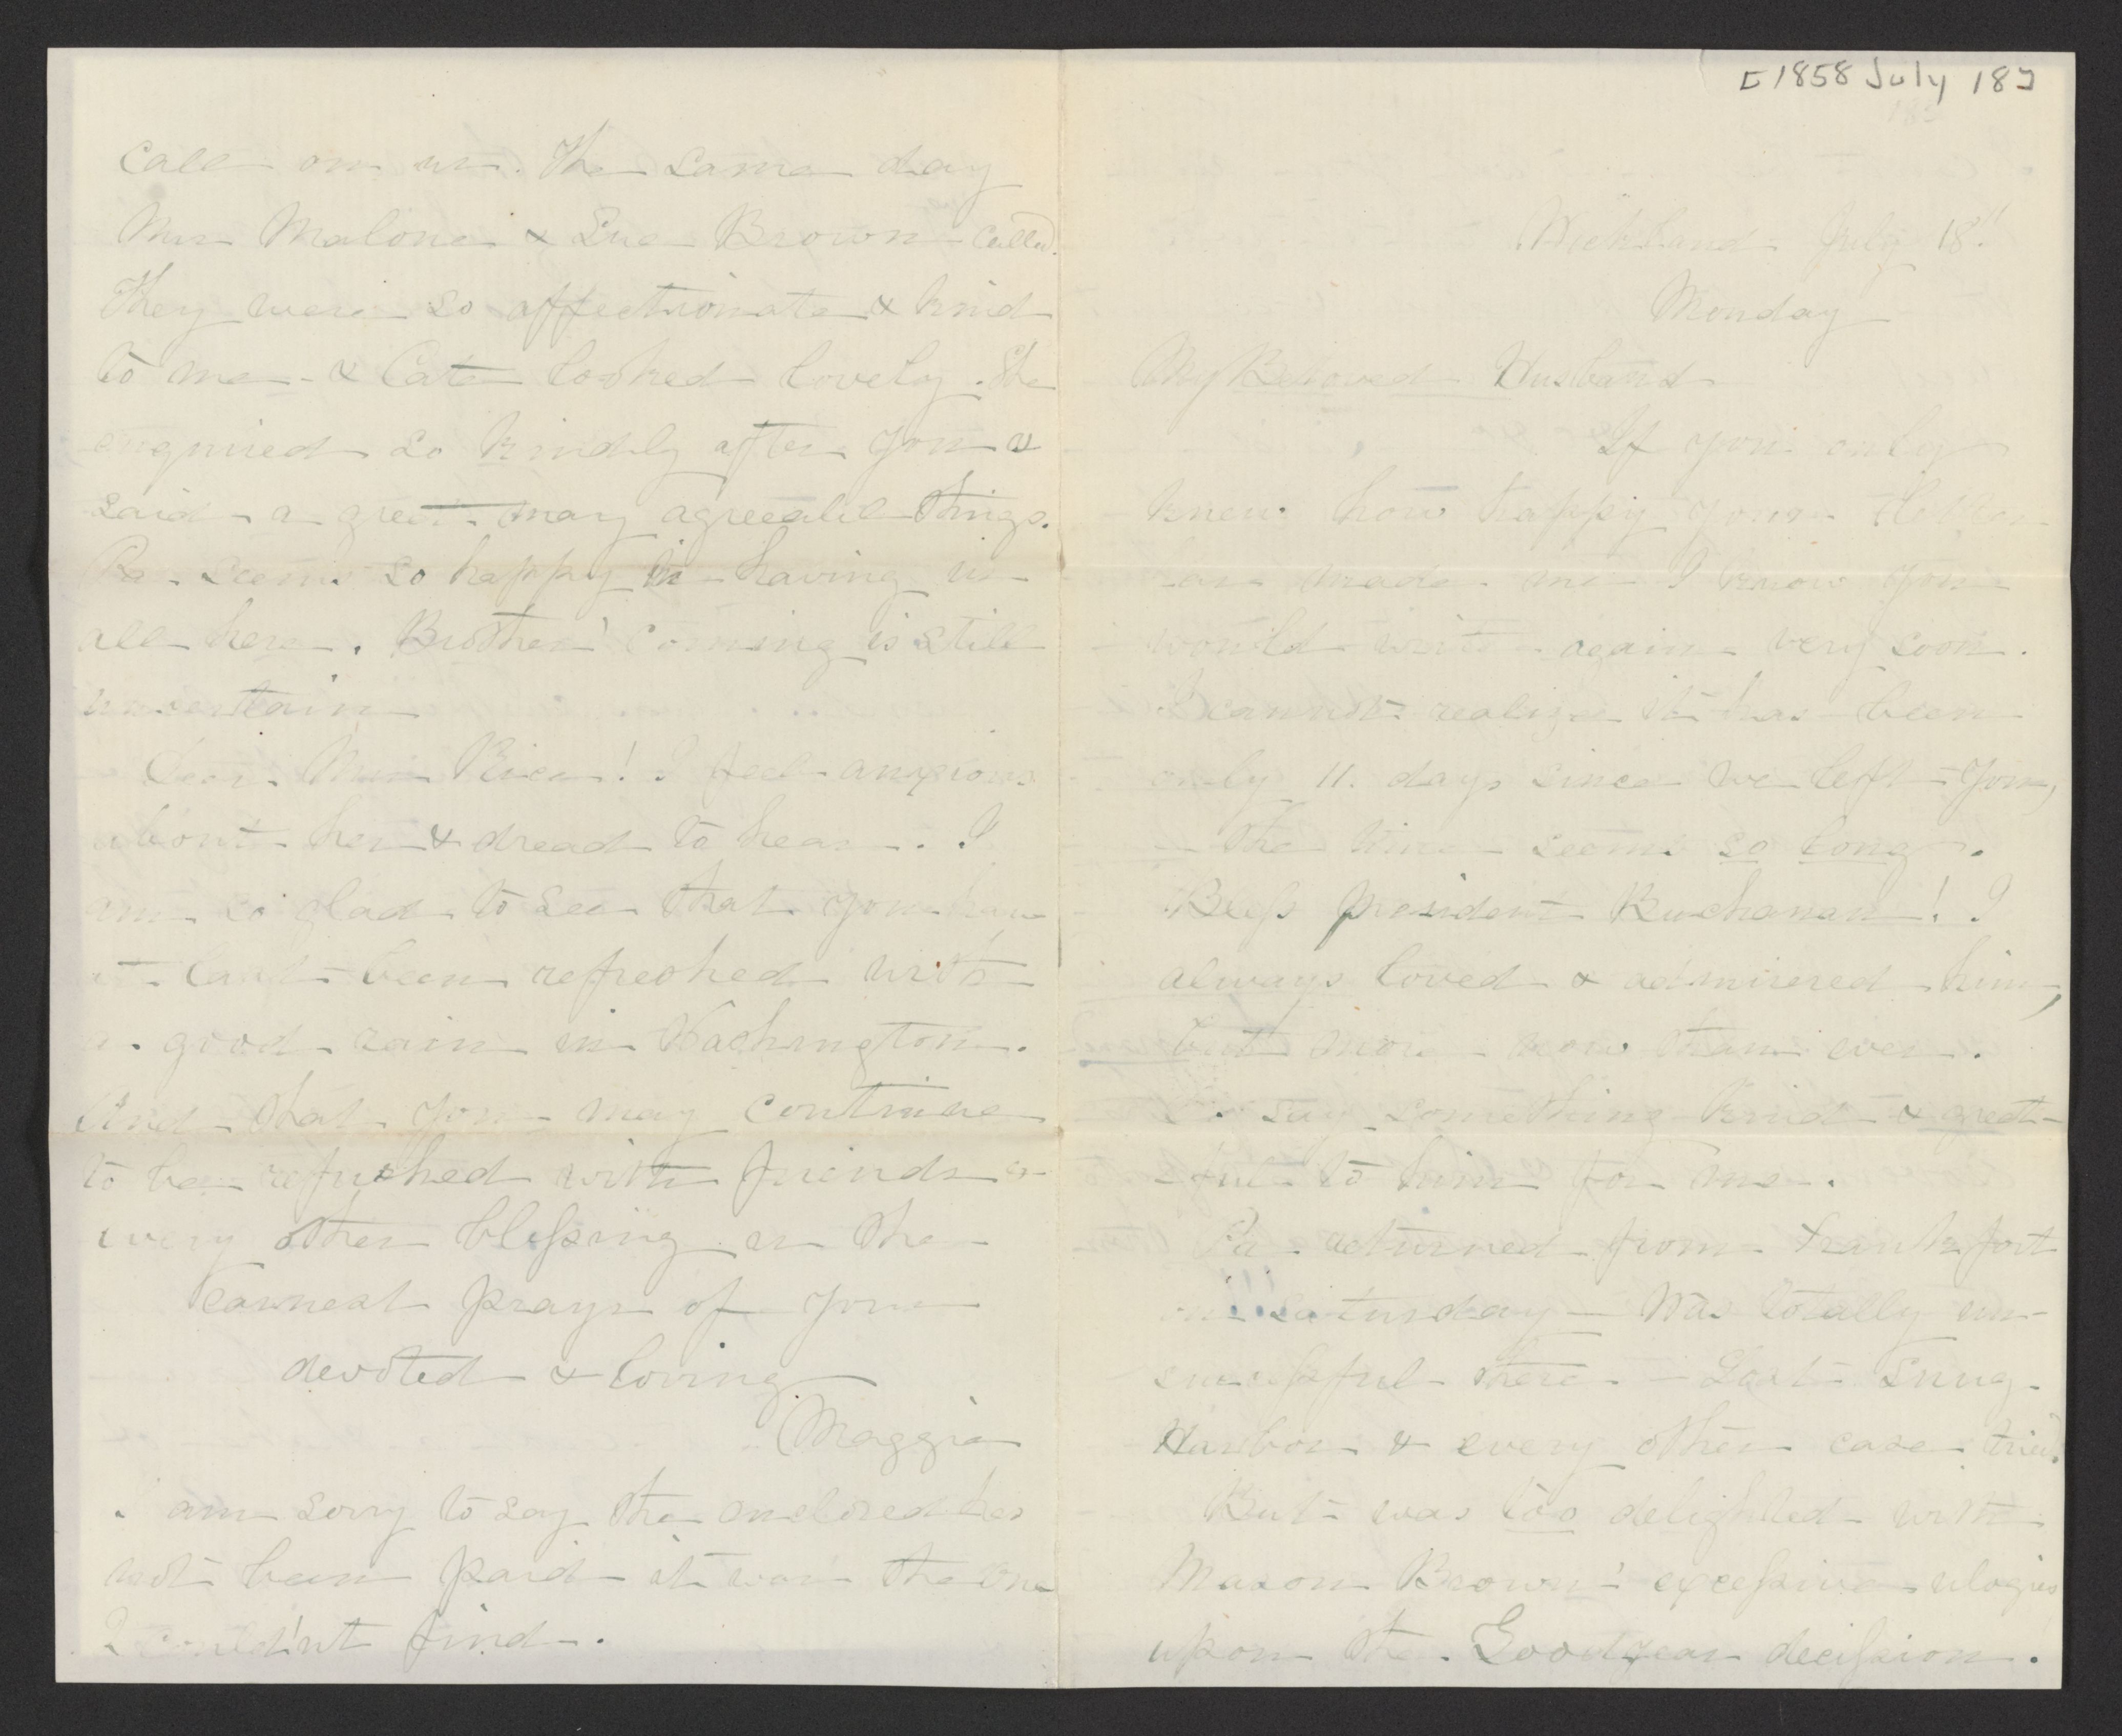 [1858 July 18]
Wickland July 18"
Monday
My Beloved Husband
If you only
knew how happy your letter
has made me I know you
would write again very soon.
I cannot realize it has been
only 11. days since we left you,
the time seems so long.
Bless President Buchanan! I
always loved & admirered him,
but more now than ever.
Do say something kind & great-
ful to him for me.
Pa returned from Frankfort
on Saturday — Was totally un-
successful there — Lost Snug
Harbor & every other case tried.
But was too delighted with
Mason Brown's excessive ulogies
upon the Goodyear decission.
call on us. The same day
Mrs Malone & Sue Brown called.
They were so affectionate & kind
to me & Cate looked lovely. She
enquired so kindly after you &
said a great many agreeable things.
Pa seems so happy in having us
all here. Brother's coming is still
uncertain
Dear Mrs Rice! I feel anxious
about her & dread to hear. I
am so glad to see that you have
at last been refreshed with
a good rain in Washington.
And that you may continue
to be refreshed with friends &
every other blessing is the
earnest prayr of your
devoted & loving
Maggie
I am sorry to say the enclosed has
not been paid it was the one
I could'nt find.